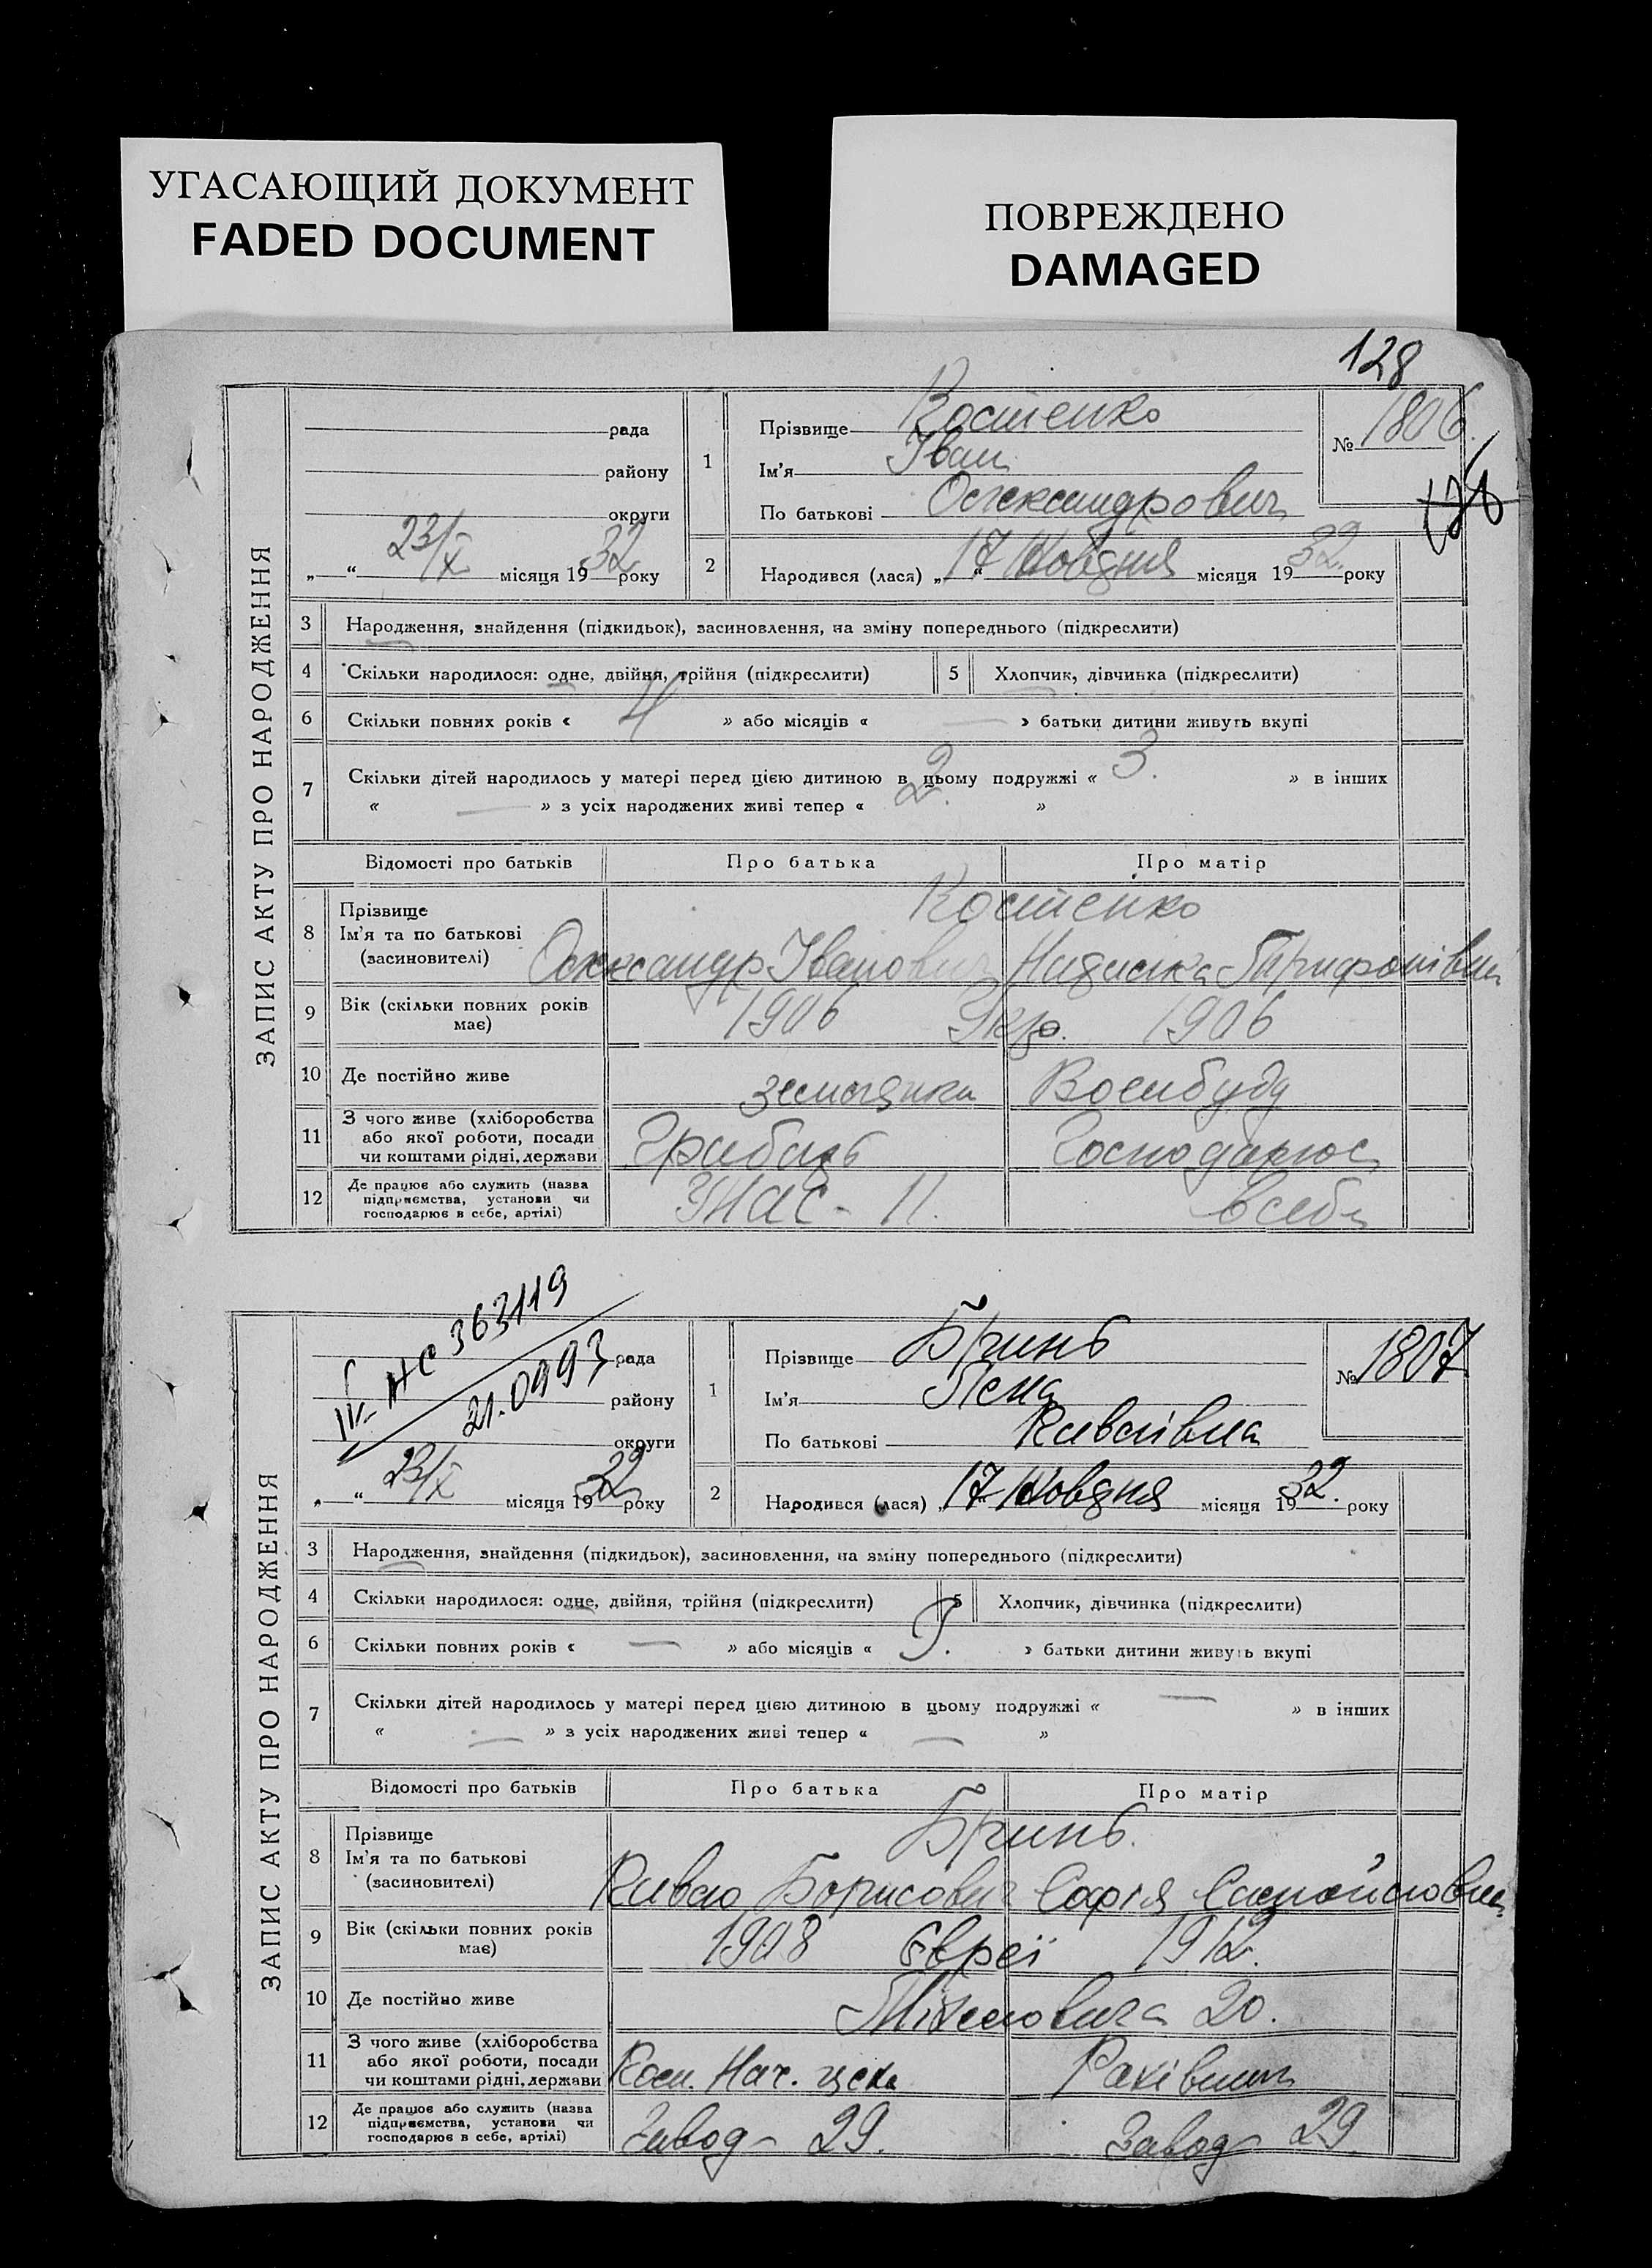 УГАСАЮЩИЙ ДОКУМЕНТ
FADED DOCUMENT
ПОВРЕЖДЕНО
DAMAGED
128
ЗАПИС АКТУ ПРО НАРОДЖЕННЯ
рада
району
округи
23/X місяця 1932 року
1
Прізвище Костенко
Ім'я Іван
По батькові Олександрович
№ 1806.
128
2
Народився (лася) „17“ Жовтня місяця 1932. року
3 Народження, знайдення (підкидьок), засиновлення, на зміну попереднього (підкреслити)
4 Скільки народилося: одне, двійня, трійня (підкреслити)
5 Хлопчик, дівчинка (підкреслити)
6 Скільки повних років « 4 » або місяців « — » батьки дитини живуть вкупі
7 Скільки дітей народилось у матері перед цією дитиною в цьому подружжі « 3. » в інших
« — » з усіх народжених живі тепер « 2. »
Відомості про батьків Про батька Про матір
8 Прізвище
Ім'я та по батькові
(засиновителі)
Костенко
Олександр Іванович
9 Вік (скільки повних років має)
1906 Укр. 1906
10 Де постійно живе
землянка Воєнбуду
11 З чого живе (хліборобства або якої роботи, посади чи коштами рідні, держави
Грабарь
12 Де працює або служить (назва підприємства, установи чи господарює в себе, артілі)
11. в себе
IV-НС 363119
21.09 93
ЗАПИС АКТУ ПРО НАРОДЖЕННЯ
рада
району
округи
23/X місяця 1932 року
1
Прізвище Бринь
Ім'я Лена
По батькові
№ 1807
2
Народився (лася) „17“ Жовтня місяця 1932. року
3 Народження, знайдення (підкидьок), засиновлення, на зміну попереднього (підкреслити)
4 Скільки народилося: одне, двійня, трійня (підкреслити)
5 Хлопчик, дівчинка (підкреслити)
6 Скільки повних років « — » або місяців « 9. » батьки дитини живуть вкупі
7 Скільки дітей народилось у матері перед цією дитиною в цьому подружжі « — » в інших
« — » з усіх народжених живі тепер « — »
Відомості про батьків Про батька Про матір
8 Прізвище
Ім'я та по батькові
(засиновителі)
Бринь.
Борисович Софія
9 Вік (скільки повних років має)
1908 Євреї 1912.
10 Де постійно живе
20.
11 З чого живе (хліборобства або якої роботи, посади чи коштами рідні, держави
Нач. цеха Рахівниця
12 Де працює або служить (назва підприємства, установи чи господарює в себе, артілі)
Завод 29. Завод 29.